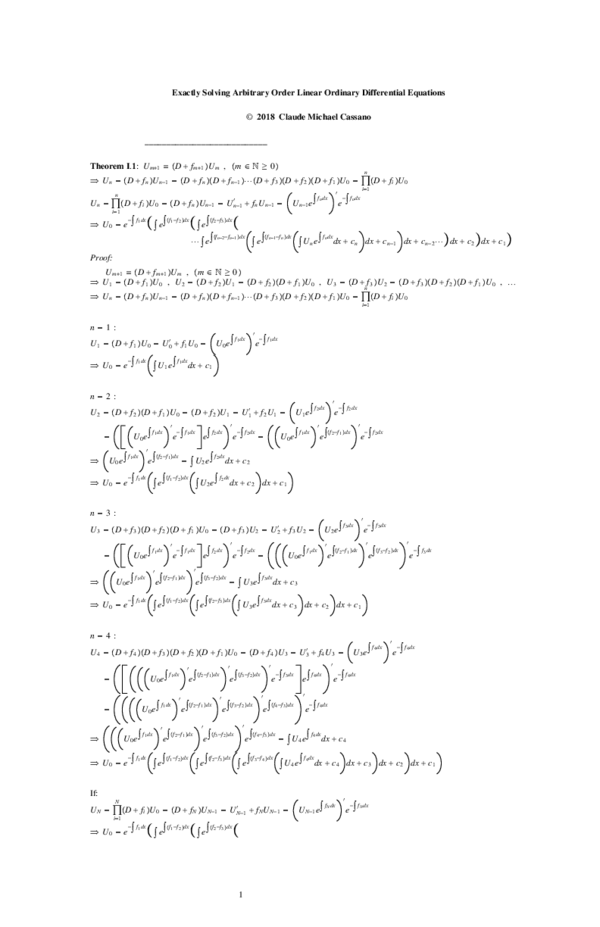 Exactly Solving Arbitrary Order Linear Ordinary Differential Equations
© 2018 Claude Michael Cassano
Theorem I.1: U_{m+1} = (D + f_{m+1})U_m , (m ∈ ℕ ≥ 0)
⇒ U_n = (D + f_n)U_{n−1} = (D + f_n)(D + f_{n−1})⋯(D + f_3)(D + f_2)(D + f_1)U_0 = ∏_{i=1}^{n}(D + f_i)U_0
U_n = ∏_{i=1}^{n}(D + f_i)U_0 = (D + f_n)U_{n−1} = U′_{n−1} + f_nU_{n−1} = (U_{n−1}e^{∫f_n dx})′e^{−∫f_n dx}
⇒ U_0 = e^{−∫f_1 dx}(∫e^{∫(f_1−f_2)dx}(∫e^{∫(f_2−f_3)dx}(
⋯∫e^{∫(f_{n−2}−f_{n−1})dx}(∫e^{∫(f_{n−1}−f_n)dx}(∫U_n e^{∫f_n dx}dx + c_n)dx + c_{n−1})dx + c_{n−2}⋯)dx + c_2)dx + c_1)
Proof:
U_{m+1} = (D + f_{m+1})U_m , (m ∈ ℕ ≥ 0)
⇒ U_1 = (D + f_1)U_0 , U_2 = (D + f_2)U_1 = (D + f_2)(D + f_1)U_0 , U_3 = (D + f_3)U_2 = (D + f_3)(D + f_2)(D + f_1)U_0 , …
⇒ U_n = (D + f_n)U_{n−1} = (D + f_n)(D + f_{n−1})⋯(D + f_3)(D + f_2)(D + f_1)U_0 = ∏_{i=1}^{n}(D + f_i)U_0
n = 1 :
U_1 = (D + f_1)U_0 = U′_0 + f_1U_0 = (U_0e^{∫f_1 dx})′e^{−∫f_1 dx}
⇒ U_0 = e^{−∫f_1 dx}(∫U_1e^{∫f_1 dx}dx + c_1)
n = 2 :
U_2 = (D + f_2)(D + f_1)U_0 = (D + f_2)U_1 = U′_1 + f_2U_1 = (U_1e^{∫f_2 dx})′e^{−∫f_2 dx}
= ([(U_0e^{∫f_1 dx})′e^{−∫f_1 dx}]e^{∫f_2 dx})′e^{−∫f_2 dx} = ((U_0e^{∫f_1 dx})′e^{∫(f_2−f_1)dx})′e^{−∫f_2 dx}
⇒ (U_0e^{∫f_1 dx})′e^{∫(f_2−f_1)dx} = ∫U_2e^{∫f_2 dx}dx + c_2
⇒ U_0 = e^{−∫f_1 dx}(∫e^{∫(f_1−f_2)dx}(∫U_2e^{∫f_2 dx}dx + c_2)dx + c_1)
n = 3 :
U_3 = (D + f_3)(D + f_2)(D + f_1)U_0 = (D + f_3)U_2 = U′_2 + f_3U_2 = (U_2e^{∫f_3 dx})′e^{−∫f_3 dx}
= ([((U_0e^{∫f_1 dx})′e^{−∫f_1 dx}]e^{∫f_2 dx})′e^{−∫f_3 dx} = (((U_0e^{∫f_1 dx})′e^{∫(f_2−f_1)dx})′e^{∫(f_3−f_2)dx})′e^{−∫f_3 dx}
⇒ ((U_0e^{∫f_1 dx})′e^{∫(f_2−f_1)dx})′e^{∫(f_3−f_2)dx} = ∫U_3e^{∫f_3 dx}dx + c_3
⇒ U_0 = e^{−∫f_1 dx}(∫e^{∫(f_1−f_2)dx}(∫e^{∫(f_2−f_3)dx}(∫U_3e^{∫f_3 dx}dx + c_3)dx + c_2)dx + c_1)
n = 4 :
U_4 = (D + f_4)(D + f_3)(D + f_2)(D + f_1)U_0 = (D + f_4)U_3 = U′_3 + f_4U_3 = (U_3e^{∫f_4 dx})′e^{−∫f_4 dx}
= ([(((U_0e^{∫f_1 dx})′e^{∫(f_2−f_1)dx})′e^{∫(f_3−f_2)dx})′e^{−∫f_3 dx}]e^{∫f_4 dx})′e^{−∫f_4 dx}
= ((((U_0e^{∫f_1 dx})′e^{∫(f_2−f_1)dx})′e^{∫(f_3−f_2)dx})′e^{∫(f_4−f_3)dx})′e^{−∫f_4 dx}
⇒ (((U_0e^{∫f_1 dx})′e^{∫(f_2−f_1)dx})′e^{∫(f_3−f_2)dx})′e^{∫(f_4−f_3)dx} = ∫U_4e^{∫f_4 dx}dx + c_4
⇒ U_0 = e^{−∫f_1 dx}(∫e^{∫(f_1−f_2)dx}(∫e^{∫(f_2−f_3)dx}(∫e^{∫(f_3−f_4)dx}(∫U_4e^{∫f_4 dx}dx + c_4)dx + c_3)dx + c_2)dx + c_1)
If:
U_N = ∏_{i=1}^{N}(D + f_i)U_0 = (D + f_N)U_{N−1} = U′_{N−1} + f_NU_{N−1} = (U_{N−1}e^{∫f_N dx})′e^{−∫f_N dx}
⇒ U_0 = e^{−∫f_1 dx}(∫e^{∫(f_1−f_2)dx}(∫e^{∫(f_2−f_3)dx}(
1